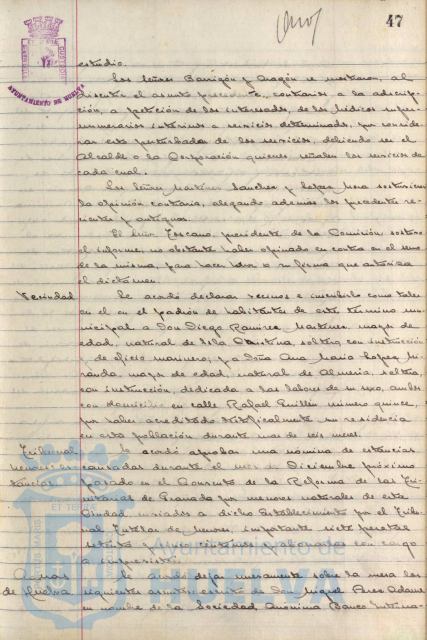 47
AYUNTAMIENTO DE HUELVA
estudio.
Los Señores Barrigón y Aragón se mostraron, al
discutir el asunto precedente, contrarios a la adscrip-
ción, a petición de los interesados, de los Médicos super-
numerarios interinos a servicios determinados, por conside-
rar esto perturbador de los servicios, debiendo ser el
Alcalde o la Corporación quienes señalen los servicios de
cada cual.
Los Señores Martínez Sánchez y López Mora sostuvieron
la opinión contraria, alegando además los precedentes re-
cientes y antiguos.
El Señor Toscano, presidente de la Comisión sostuvo
el informe, no obstante haber opinado en contra en el seno
de la misma, para hacer honor a su firma que autoriza
el dictámen.
Vecindad
Se acordó declarar vecinos e inscribirlo como tales
en el en el padrón de habitantes de este término mu-
nicipal a Don Diego Ramírez Martínez, mayor de
edad, natural de Isla Cristina, soltero con instrucción
de oficio marinero, y a Doña Ana María López Mi-
randa, mayor de edad, natural de Almería, soltera,
con instrucción, dedicada a las labores de su sexo, ambos
con domicilio en calle Rafael Guillén número quince,
por haber acreditado testificalmente su residencia
en esta población durante mas de seis meses.
Tribunal
menores es-
tancias
Se acordó aprobar una nómina de estancias
causadas durante el mes de Diciembre próximo
pasado en el Convento de la Reforma de las Tri-
nitarias de Granada por menores naturales de esta
Ciudad enviados a dicho Establecimiento por el Tribu-
nal Tutelar de Menores, importante siete pesetas
setenta y cinco céntimos, abonados con cargo
a imprevistos.
Aguas
de Huelva
Se acordó dejar nuevamente sobre la mesa los
siguientes asuntos: escrito de Don Miguel Pérez Adame
en nombre de la Sociedad Anónima Banco Interna-
Ayuntamiento de
HUELVA